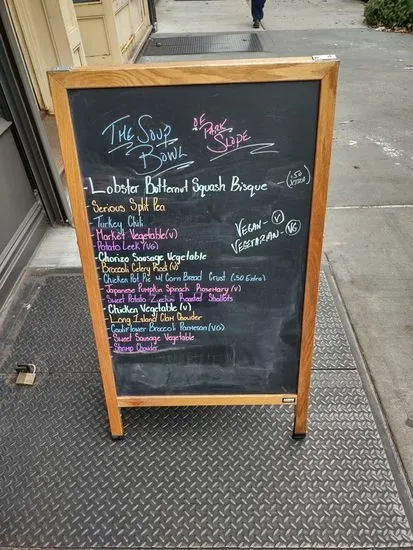 The Soup Bowl
of Park Slope
- Lobster Butternut Squash Bisque - (.50 extra)
- Serious Split Pea
- Turkey Chili
- Market Vegetable (V)
- Potato Leek (VG)
- Chorizo Sausage Vegetable
- Broccoli Celery Root (V)
- Chicken Pot Pie w/ Corn Bread Crust (.50 Extra)
- Japanese Pumpkin Spinach Rosemary (V)
- Sweet Potato Zuchini Roasted Shallots
- Chicken Vegetable (V)
- Long Island Clam Chowder
- Cauliflower Broccoli Parmesan (VG)
- Sweet Sausage Vegetable
- Shrimp Chowder
Vegan - (V)
Vegetarian - (VG)